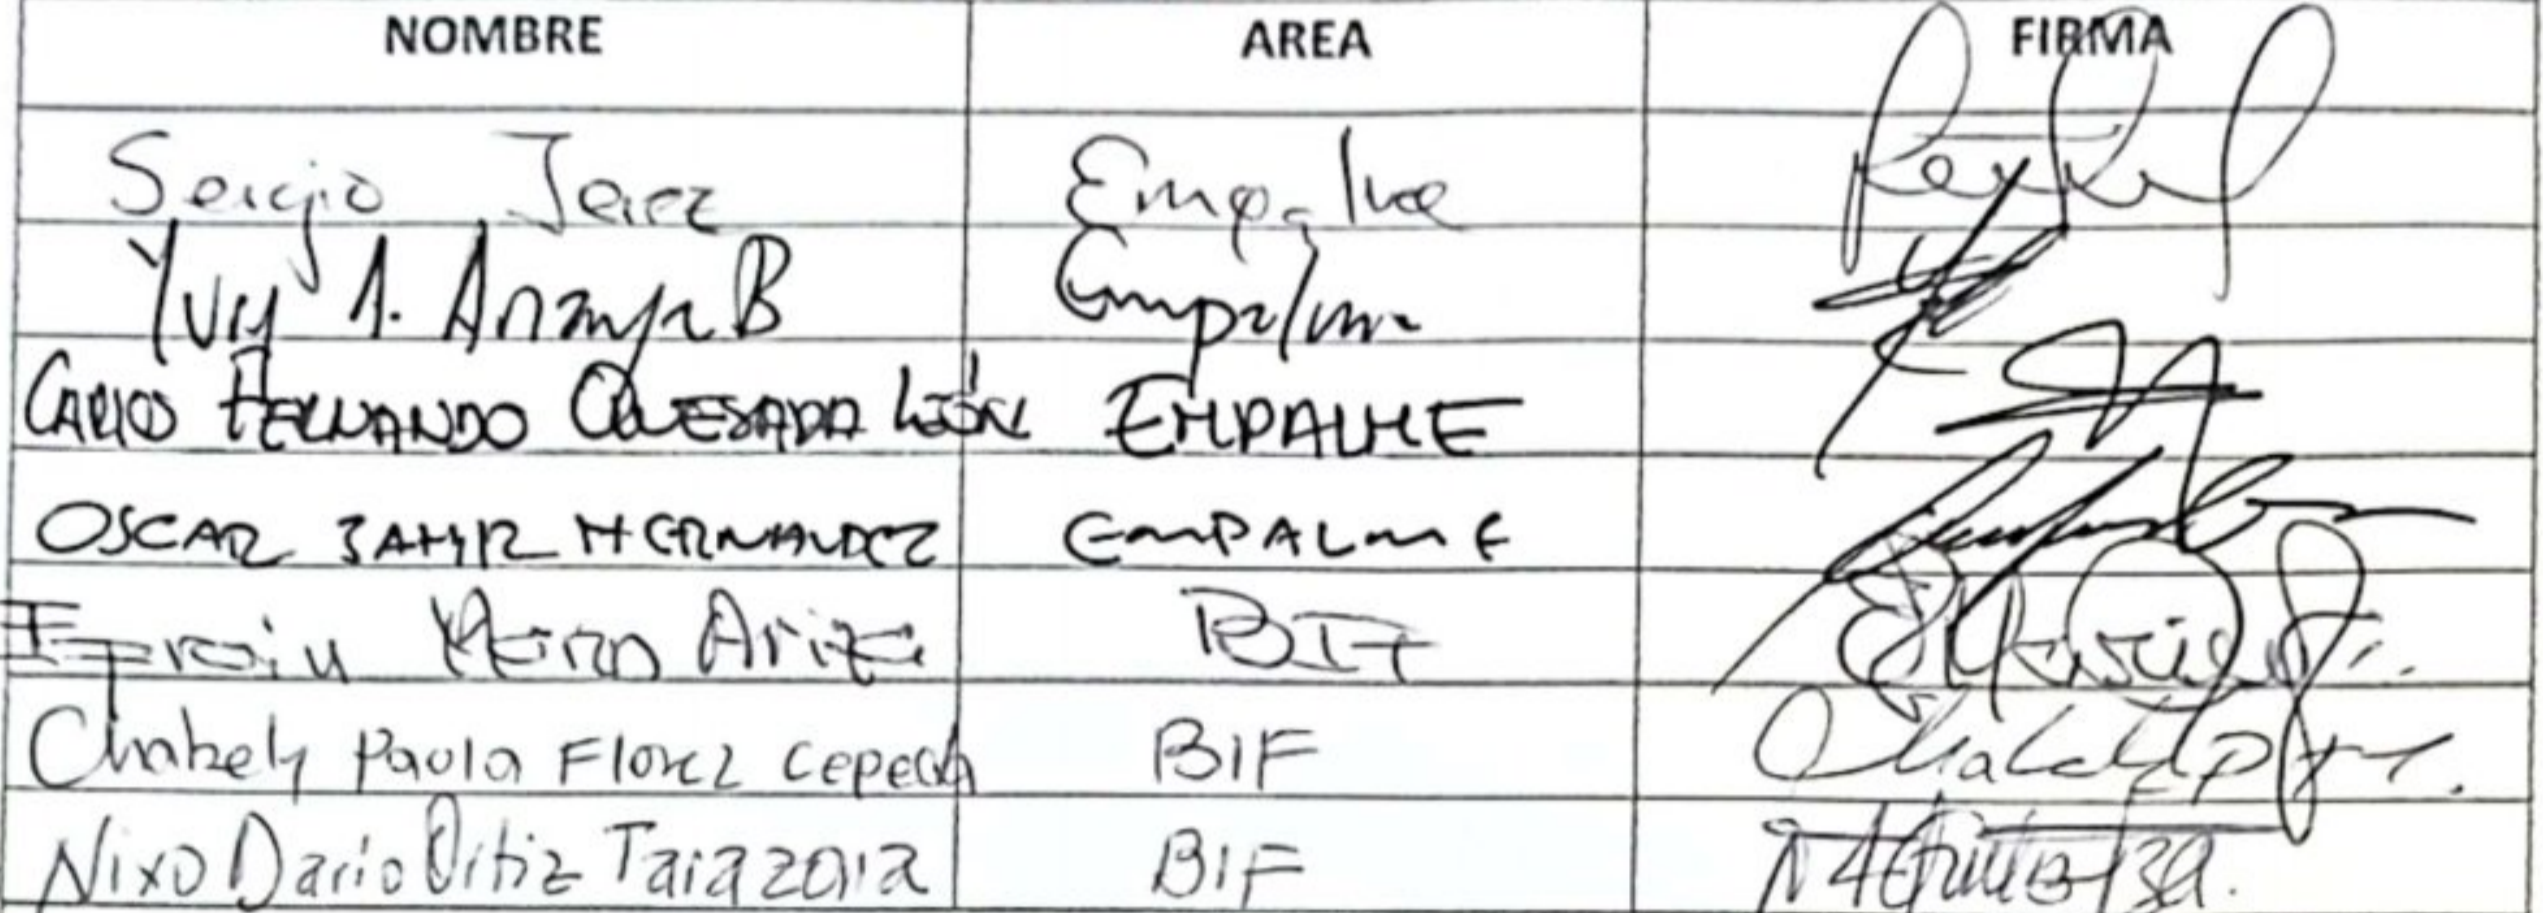 NOMBRE AREA FIRMA
Sergio Jerez Empalme
Yury A. Anaya B Empalme
CARLOS FERNANDO QUESADA LEÓN EMPALME
OSCAR JAMIR HERNANDEZ EMPALME
Efrain Ariza BIF
Chabely Paola Florez Cepeda BIF
Nixo Dario Ortiz Tarazona BIF